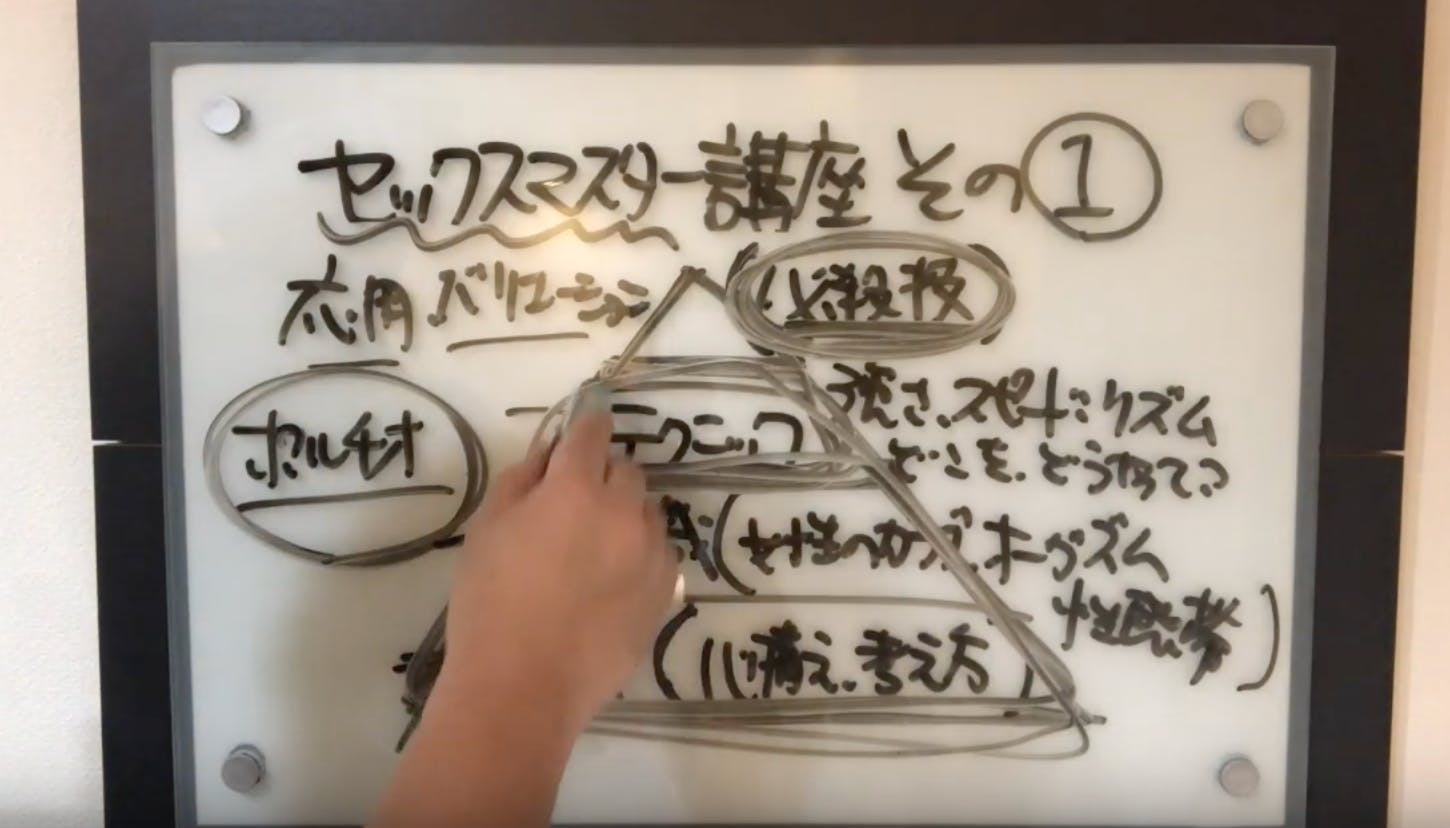 セックスマスター講座 その①
応用 バリエーション (必殺技)
ポルチオ
テクニック 強さ、スピード、リズム
どこを、どうなて?
(女性のカラダ、オーガズム
性感帯)
(心構え、考え方)